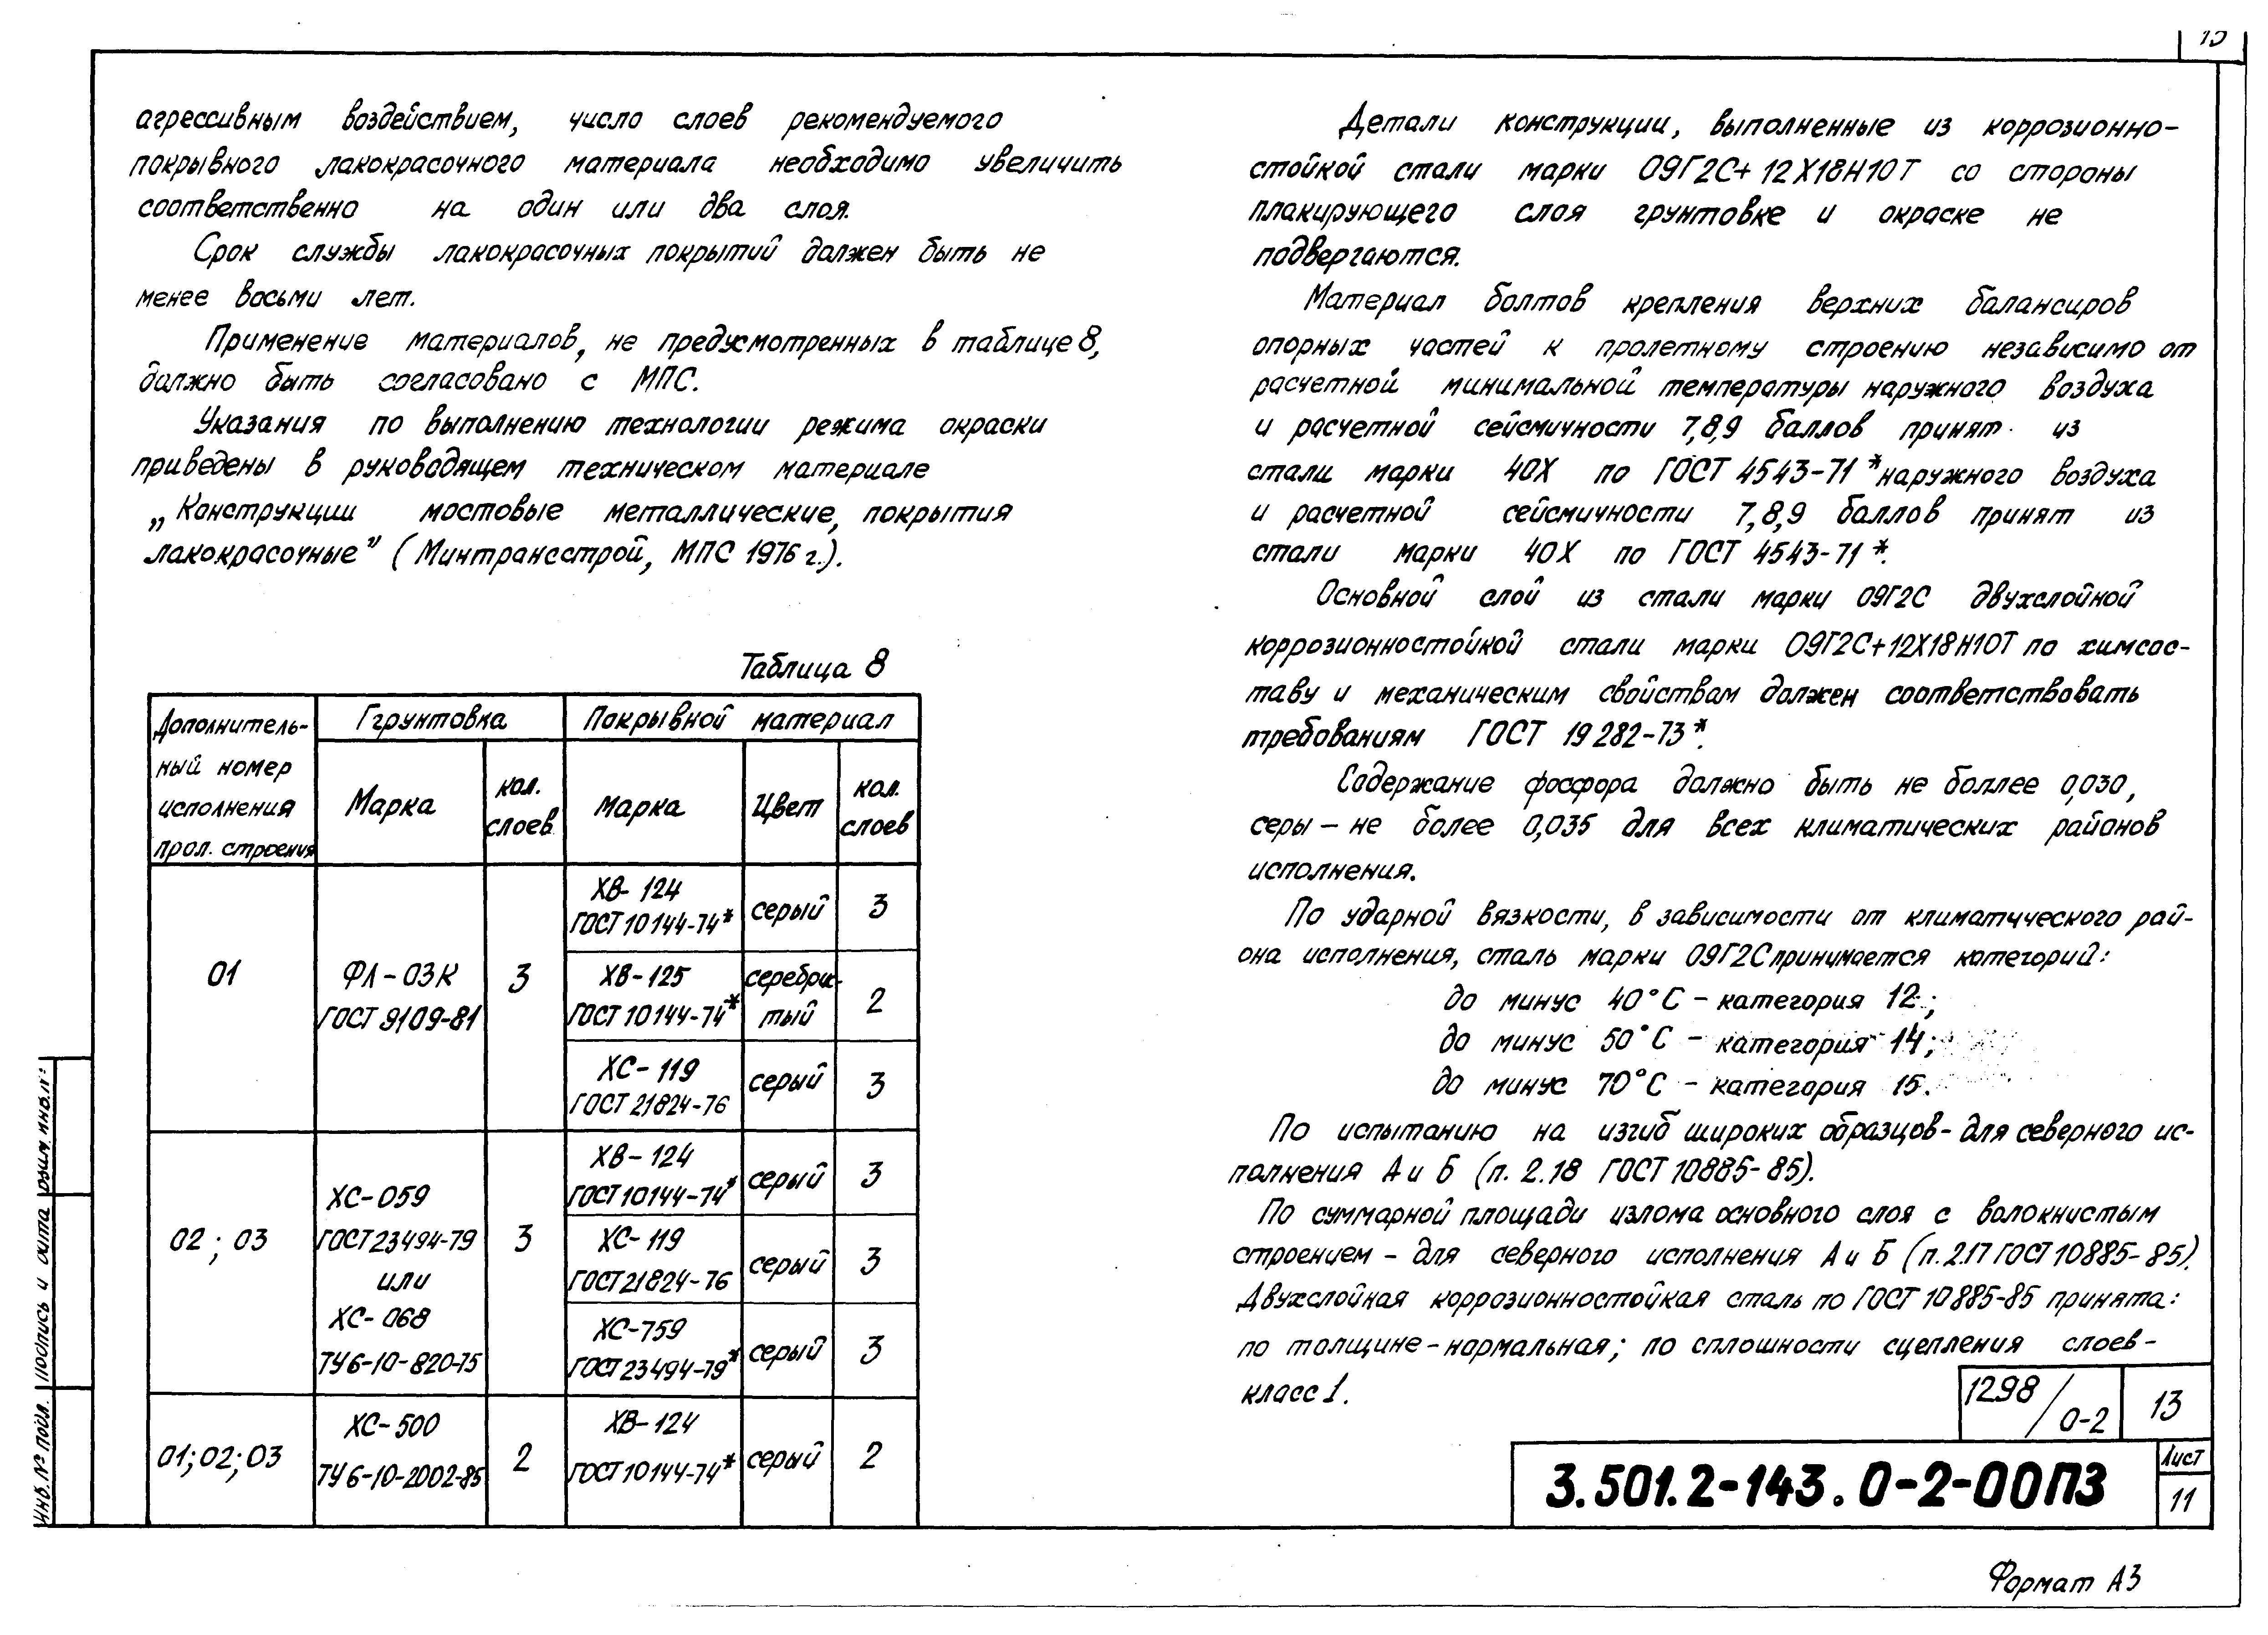 агрессивным воздействием, число слоев рекомендуемого
покрывного лакокрасочного материала необходимо увеличить
соответственно на один или два слоя.
Срок службы лакокрасочных покрытий должен быть не
менее восьми лет.
Применение материалов, не предусмотренных в таблице 8,
должно быть согласовано с МПС.
Указания по выполнению технологии режима окраски
приведены в руководящем техническом материале
„Конструкции мостовые металлические, покрытия
лакокрасочные" (Минтрансстрой, МПС 1976 г.).
Таблица 8
Дополнитель-
ный номер
исполнения
прол. строения
Ггрунтовка
Покрывной материал
Марка
кол.
слоев
марка
Цвет
кол.
слоев
01
ФЛ-03К
ГОСТ 9109-81
3
ХВ-124
ГОСТ 10144-74*
серый
3
ХВ-125
ГОСТ 10144-74*
серебри-
тый
2
ХС-119
ГОСТ 21824-76
серый
3
02; 03
ХС-059
ГОСТ 23494-79
или
ХС-068
ТУ6-10-820-75
3
ХВ-124
ГОСТ 10144-74*
серый
3
ХС-119
ГОСТ 21824-76
серый
3
ХС-759
ГОСТ 23494-79*
серый
3
01;02;03
ХС-500
ТУ6-10-2002-85
2
ХВ-124
ГОСТ 10144-74*
серый
2
Детали конструкции, выполненные из коррозионно-
стойкой стали марки 09Г2С+12Х18Н10Т со стороны
плакирующего слоя грунтовке и окраске не
подвергаются.
Материал болтов крепления верхних балансиров
опорных частей к пролетному строению независимо от
расчетной минимальной температуры наружного воздуха
и расчетной сейсмичности 7,8,9 баллов принят из
стали марки 40Х по ГОСТ 4543-71* наружного воздуха
и расчетной сейсмичности 7,8,9 баллов принят из
стали марки 40Х по ГОСТ 4543-71*.
Основной слой из стали марки 09Г2С двухслойной
коррозионностойкой стали марки 09Г2С+12Х18Н10Т по химсос-
таву и механическим свойствам должен соответствовать
требованиям ГОСТ 19282-73*.
Содержание фосфора должно быть не боллее 0,030,
серы - не более 0,035 для всех климатических районов
исполнения.
По ударной вязкости, в зависимости от климатического рай-
она исполнения, сталь марки 09Г2С принимается категорий:
до минус 40°С - категория 12;
до минус 50°С - категория 14;
до минус 70°С - категория 15.
По испытанию на изгиб широких образцов - для северного ис-
полнения А и Б (п. 2.18 ГОСТ 10885-85).
По суммарной площади излома основного слоя с волокнистым
строением - для северного исполнения А и Б (п. 2.17 ГОСТ 10885-85).
Двухслойная коррозионностойкая сталь по ГОСТ 10885-85 принята:
по толщине - нормальная; по сплошности сцепления слоев -
класс 1.
1298/0-2
13
3.501.2-143.0-2-00ПЗ
Лист
11
Формат А3
Инв. № подл.
Подпись и дата
Взам. инв. №